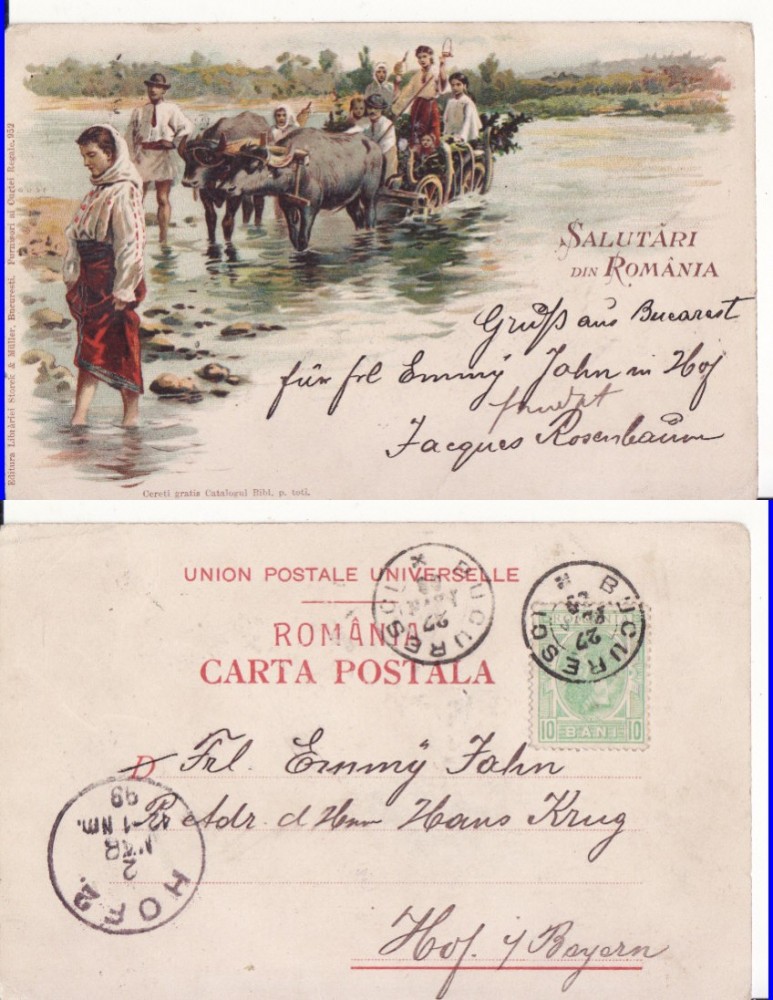 Editura Librăriei Storck & Müller, Bucuresti. Furnisori ai Curtei Regale. 952
SALUTĂRI
DIN ROMÂNIA
Gruß aus Bucarest
für Frl Emmy Jahn in Hof
Jacques Rosenbaum
Cereti gratis Catalogul Bibl. p. toti.
UNION POSTALE UNIVERSELLE
ROMÂNIA
CARTA POSTALA
BUCURESCI
27
BUCURESCI
27
10 BANI 10
D Frl. Emmy Jahn
Adr. d Herrn Hans Krug
HOF 2.
2
MAR
12-1 Nm.
99
Hof i/Bayern